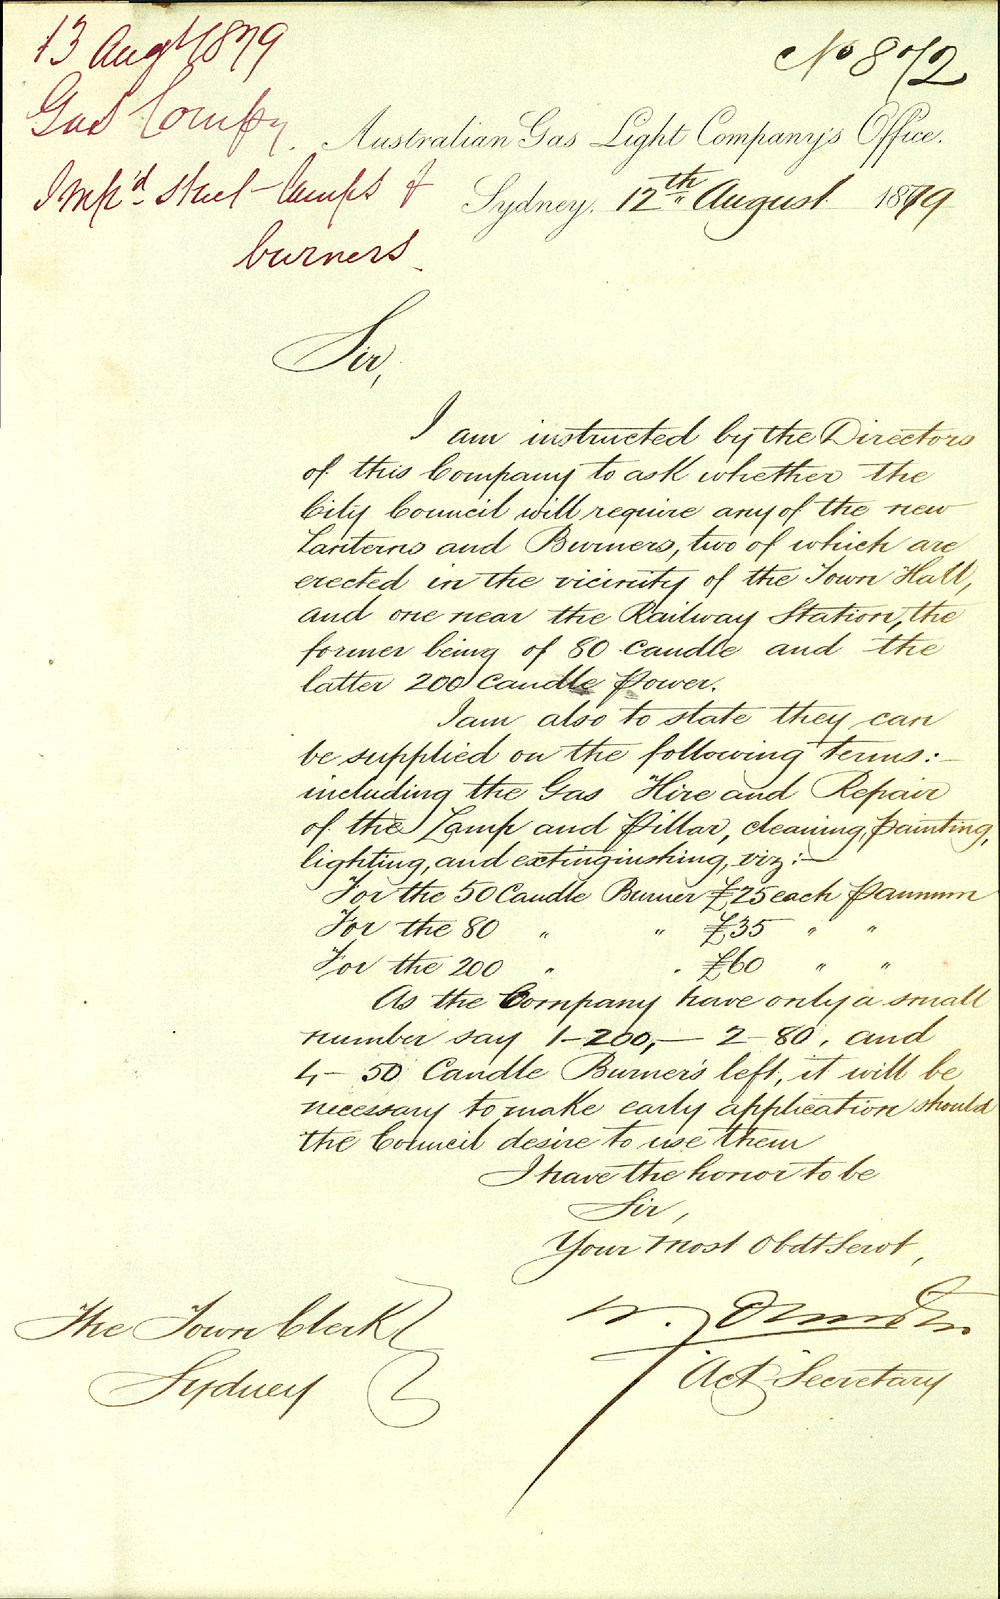 13 Augt 1879
Gas Compy.
Imp'd Street-lamps &
burners.
No 872
Australian Gas Light Company's Office.
Sydney. 12th August 1879
Sir,
I am instructed by the Directors
of this Company to ask whether the
City Council will require any of the new
Lanterns and Burners, two of which are
erected in the vicinity of the Town Hall,
and one near the Railway Station, the
former being of 80 Candle and the
latter 200 Candle Power.
I am also to state they can
be supplied on the following terms:-
including the Gas Hire and Repair
of the Lamp and Pillar, cleaning, painting,
lighting, and extinginshing, viz:-
For the 50 Candle Burner £25 each P annum
For the 80 " " £35 " "
For the 200 " " £60 " "
As the Company have only a small
number say 1-200,- 2-80, and
4-50 Candle Burners left, it will be
necessary to make early application should
the Council desire to use them
I have the honor to be
Sir,
Your Most Obdt Servt,
Act Secretary
The Town Clerk
Sydney